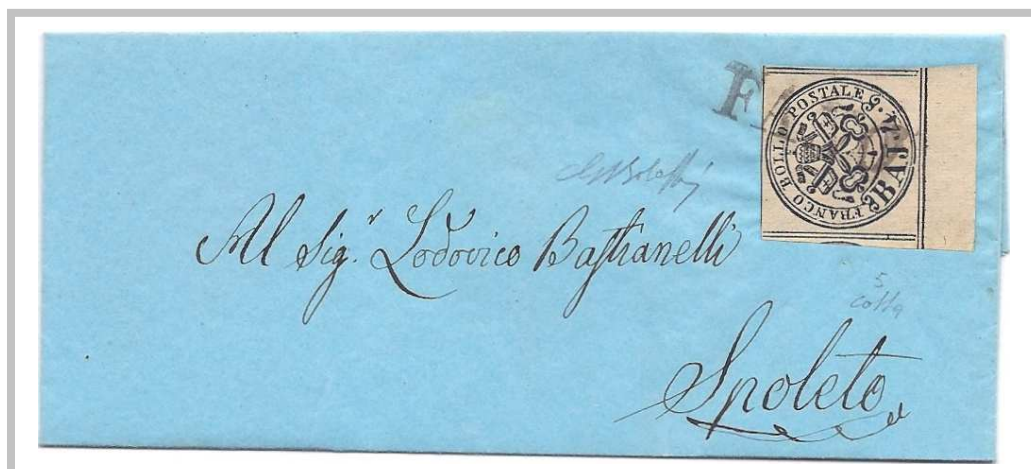 FRANCO BOLLO POSTALE
BAJ.
Al Sig.r Lodovico Bastianelli
Spoleto